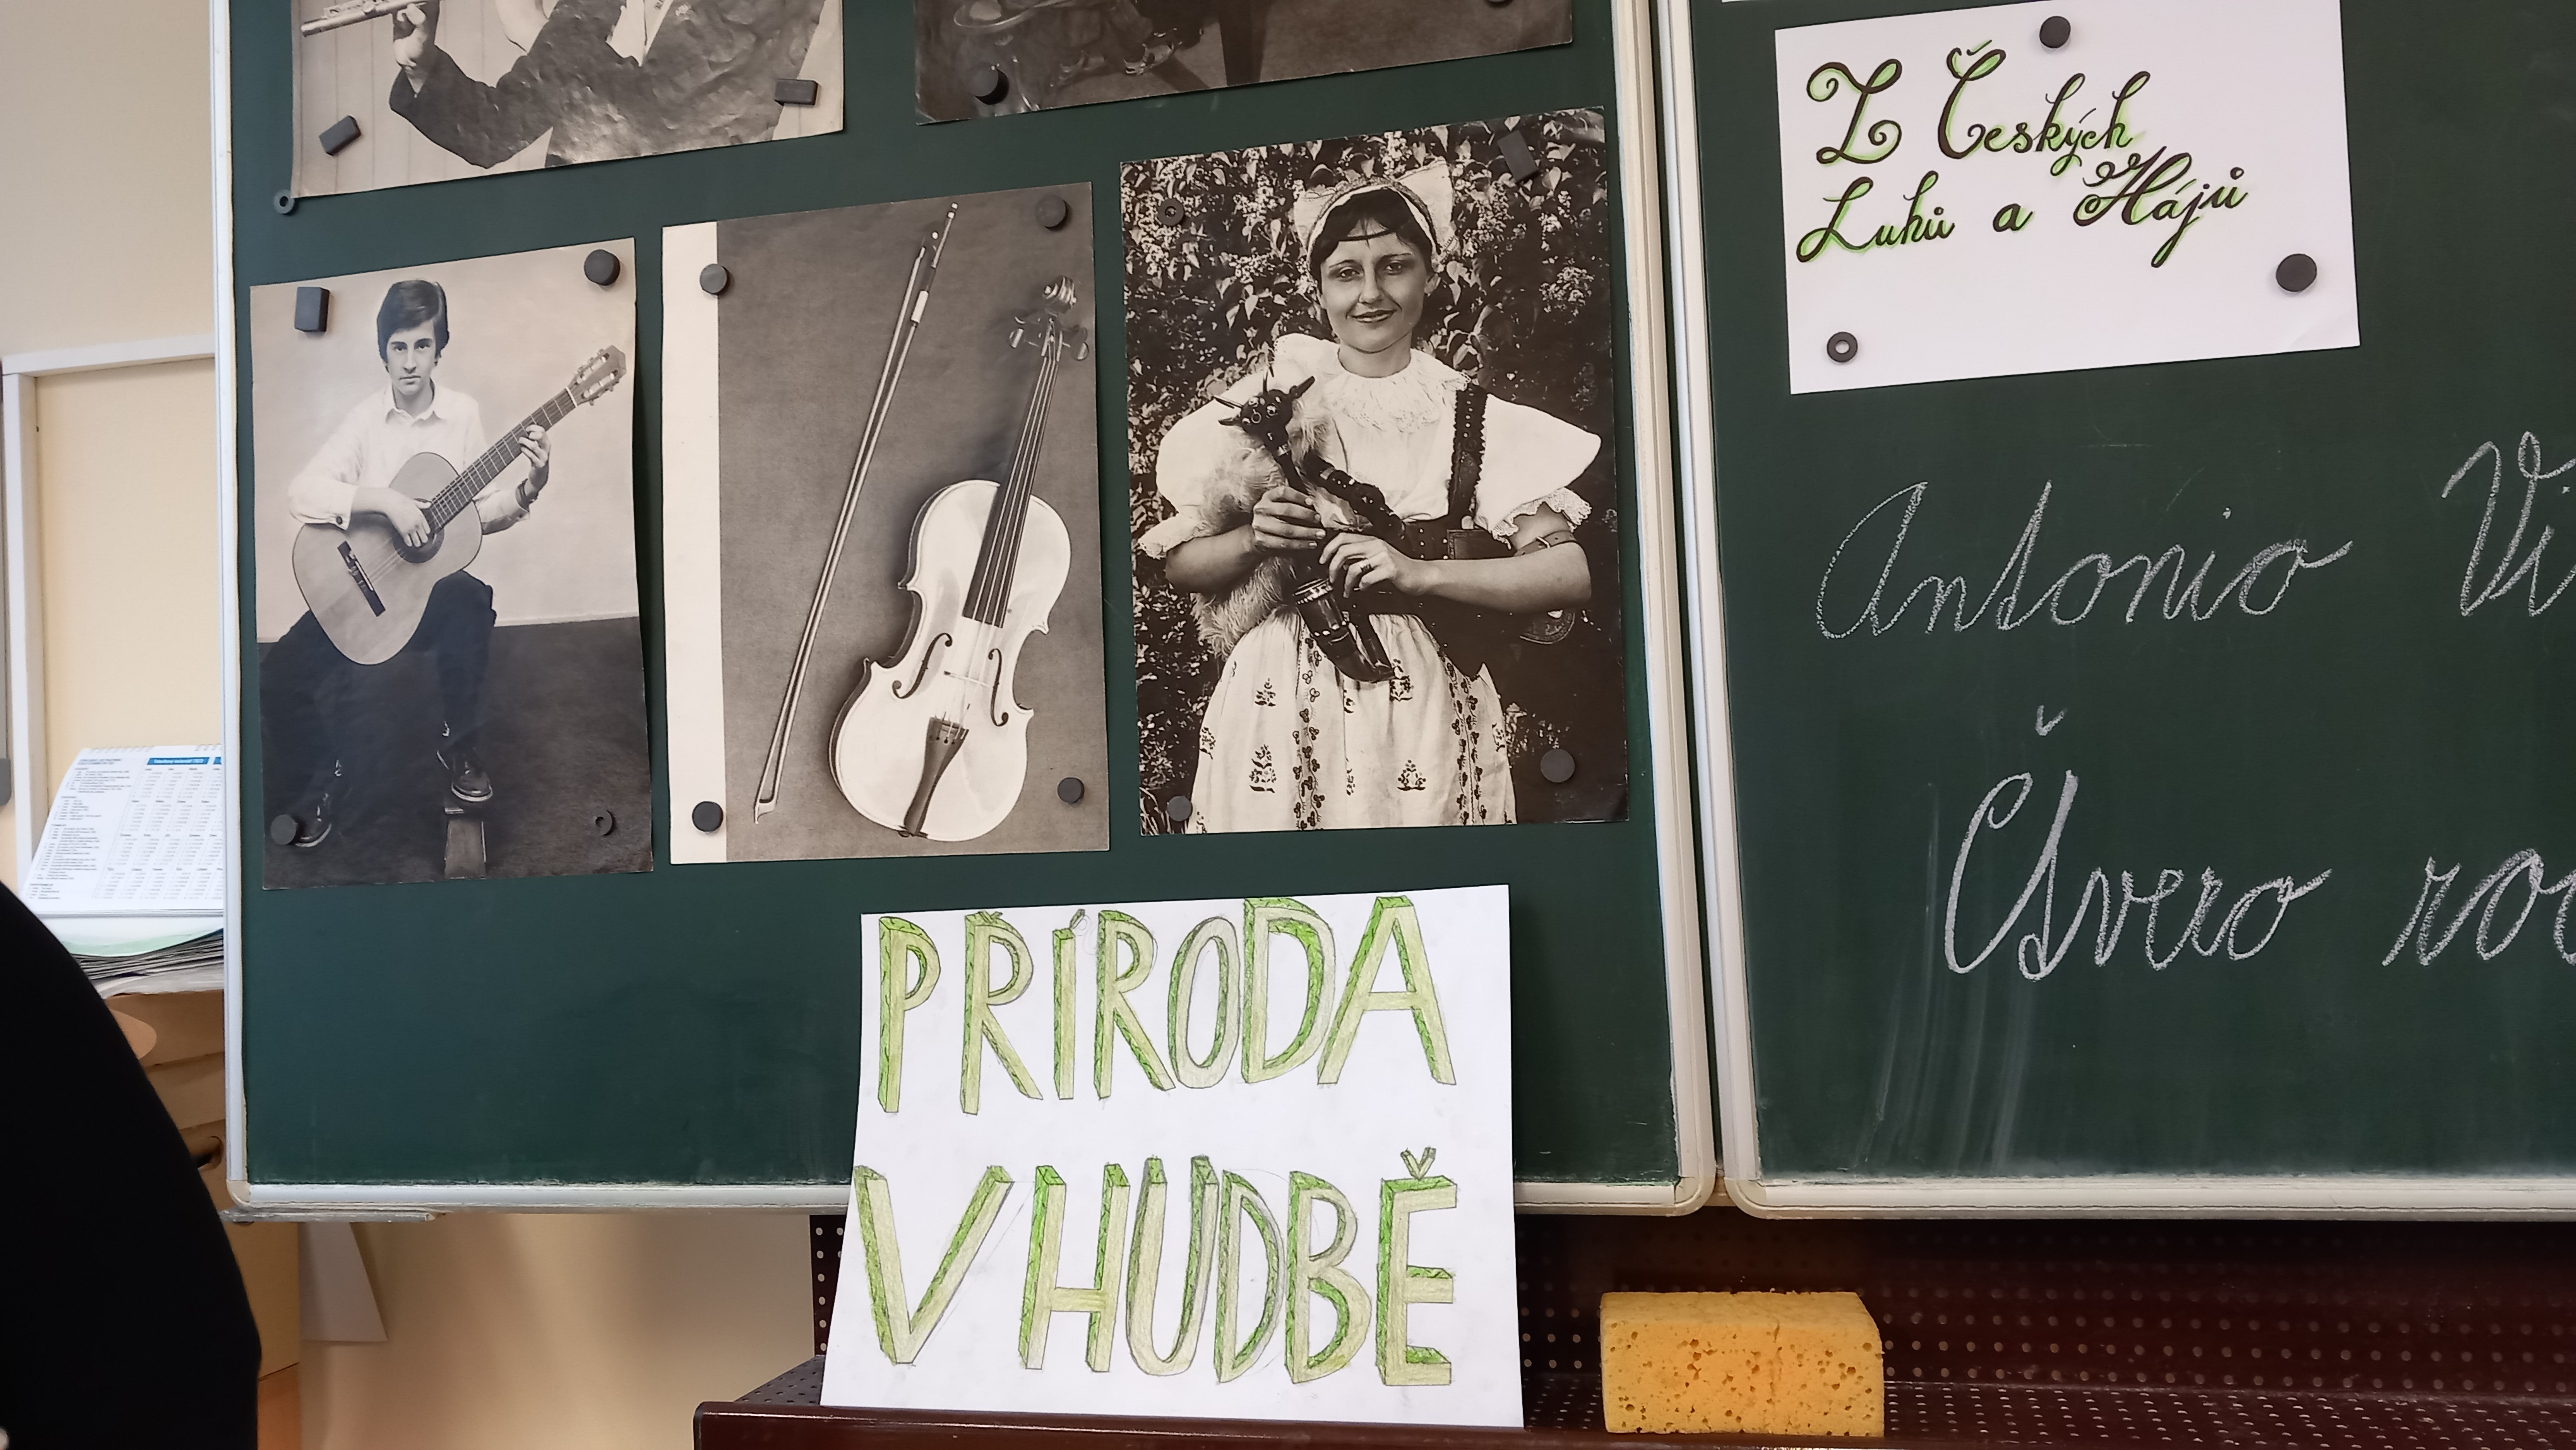 Z Českých
Luhů a Hájů
Antonio Vi
Čtvero ro
PŘÍRODA
V HUDBĚ